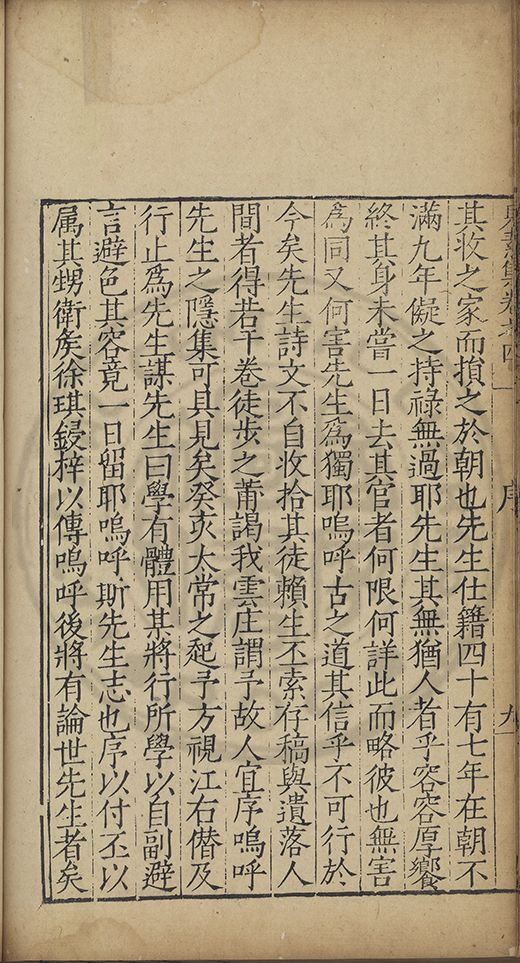 序
九
其收之家而損之於朝也先生仕籍四十有七年在朝不
滿九年儗之持祿無過耶先生其無猶人者乎容容厚饗
終其身未嘗一日去其官者何限何詳此而略彼也無害
為同又何害先生為獨耶嗚呼古之道其信乎不可行於
今矣先生詩文不自收拾其徒賴生丕索存稿與遺落人
間者得若干卷徒步之莆謁我雲庄謂予故人宜序嗚呼
先生之隱集可具見矣癸亥太常之起予方視江右僣及
行止為先生謀先生曰學有體用某將行所學以自副避
言避色其容竟一日留耶嗚呼斯先生志也序以付丕以
属其甥衛矦徐琪鋟梓以傳嗚呼後將有論世先生者矣